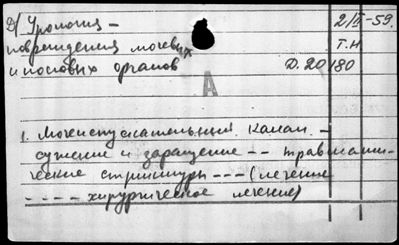 Д/ Урология – 2/II-59.
повреждения мочевых Т.Н
и половых органов Д. 20180
А
1. Мочеиспускательный канал –
сужение и заращение -- травмати-
ческие стриктуры --- (лечение
---- хирургическое лечение)